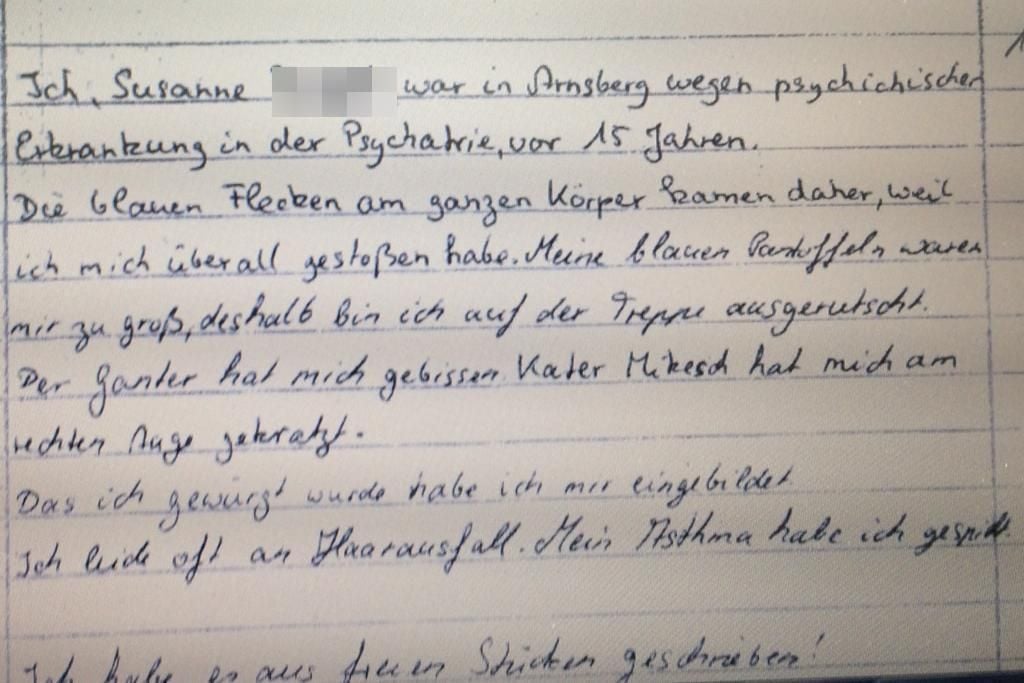 Ich, Susanne war in Arnsberg wegen psychichischer
Erkrankung in der Psychatrie, vor 15 Jahren.
Die blauen Flecken am ganzen Körper kamen daher, weil
ich mich überall gestoßen habe. Meine blauen Pantoffeln waren
mir zu groß, deshalb bin ich auf der Treppe ausgerutscht.
Der Ganter hat mich gebissen. Kater Mikesch hat mich am
rechten Auge gekratzt.
Das ich gewürgt wurde habe ich mir eingebildet
Ich leide oft an Haarausfall. Mein Asthma habe ich gespielt.
Ich habe es aus freien Stücken geschrieben!